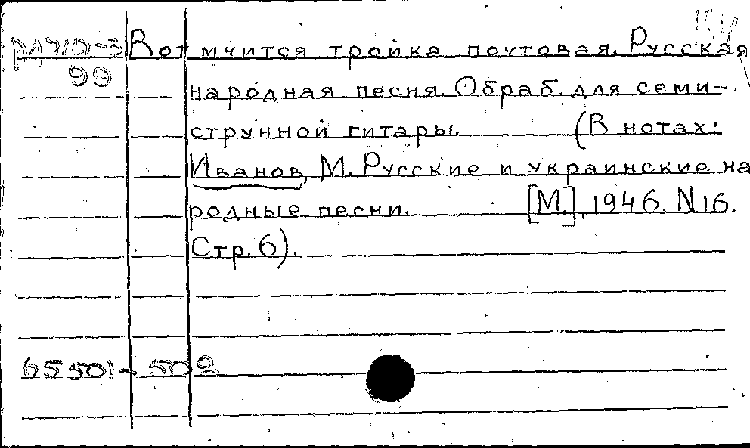 Вот мчится тройка почтовая. Русская
99
народная песня. Обраб. для семи-
струнной гитары. (В нотах:
Иванов, М. Русские и украинские на
родные песни. [М.], 1946. N16.
Стр. 6).
65501-502